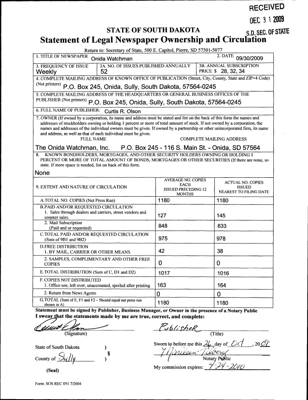 RECEIVED
DEC 31 2009
S.D. SEC. OF STATE
STATE OF SOUTH DAKOTA
Statement of Legal Newspaper Ownership and Circulation
Return to: Secretary of State, 500 E. Capitol, Pierre, SD 57501-5077
1. TITLE OF NEWSPAPER Onida Watchman 2. DATE 09/30/2009
3. FREQUENCY OF ISSUE 3A. NO. OF ISSUES PUBLISHED ANNUALLY 3B. ANNUAL SUBSCRIPTION
Weekly 52 PRICE $ 28, 32, 34
4. COMPLETE MAILING ADDRESS OF KNOWN OFFICE OF PUBLICATION (Street, City, County, State and ZIP+4 Code)
(Not printers) P.O. Box 245, Onida, Sully, South Dakota, 57564-0245
5. COMPLETE MAILING ADDRESS OF THE HEADQUARTERS OF GENERAL BUSINESS OFFICES OF THE
PUBLISHER (Not printers) P.O. Box 245, Onida, Sully, South Dakota, 57564-0245
6. FULL NAME OF PUBLISHER: Curtis R. Olson
7. OWNER (If owned by a corporation, its name and address must be stated and
FULL NAME COMPLETE MAILING ADDRESS
The Onida Watchman, Inc. P.O. Box 245 - 116 S. Main St. - Onida, SD 57564
8. KNOWN BONDHOLDERS, MORTGAGEES, AND OTHER SECURITY HOLDERS OWNING OR HOLDING 1
PERCENT OR MORE OF TOTAL AMOUNT OF BONDS, MORTGAGES OR OTHER SECURITIES
None
9. EXTENT AND NATURE OF CIRCULATION
AVERAGE NO. COPIES
EACH
ISSUED PRECEDING 12
MONTHS
ACTUAL NO. COPIES
ISSUED
NEAREST TO FILING DATE
A. TOTAL NO. COPIES (Net Press Run) 1180 1180
B. PAID AND/OR REQUESTED CIRCULATION
1. Sales through dealers and carriers, street vendors and
counter sales 127 145
2. Mail Subscription
(Paid and/or requested) 848 833
C. TOTAL PAID AND/OR REQUESTED CIRCULATION
(Sum of 9B1 and 9B2) 975 978
D. FREE DISTRIBUTION
1. BY MAIL, CARRIER OR OTHER MEANS 42 38
2. SAMPLES, COMPLIMENTARY AND OTHER FREE
COPIES 0 0
E. TOTAL DISTRIBUTION (Sum of C, D1 and D2) 1017 1016
F. COPIES NOT DISTRIBUTED
1. Office use, left over, unaccounted, spoiled after printing 163 164
2. Return from News Agents 0 0
G. TOTAL (Sum of E, F1 and F2 - Should equal net press run
shown in A) 1180 1180
Statement must be signed by Publisher, Business Manager, or Owner in the presence of a Notary Public
I swear that the statements made by me are true, correct, and complete:
Publisher
(Signature) (Title)
State of South Dakota )
County of Sully )
Sworn to before me this 26 day of Oct
Notary Public
(Seal) My commission expires:
Form: SOS REC 051 7/2004